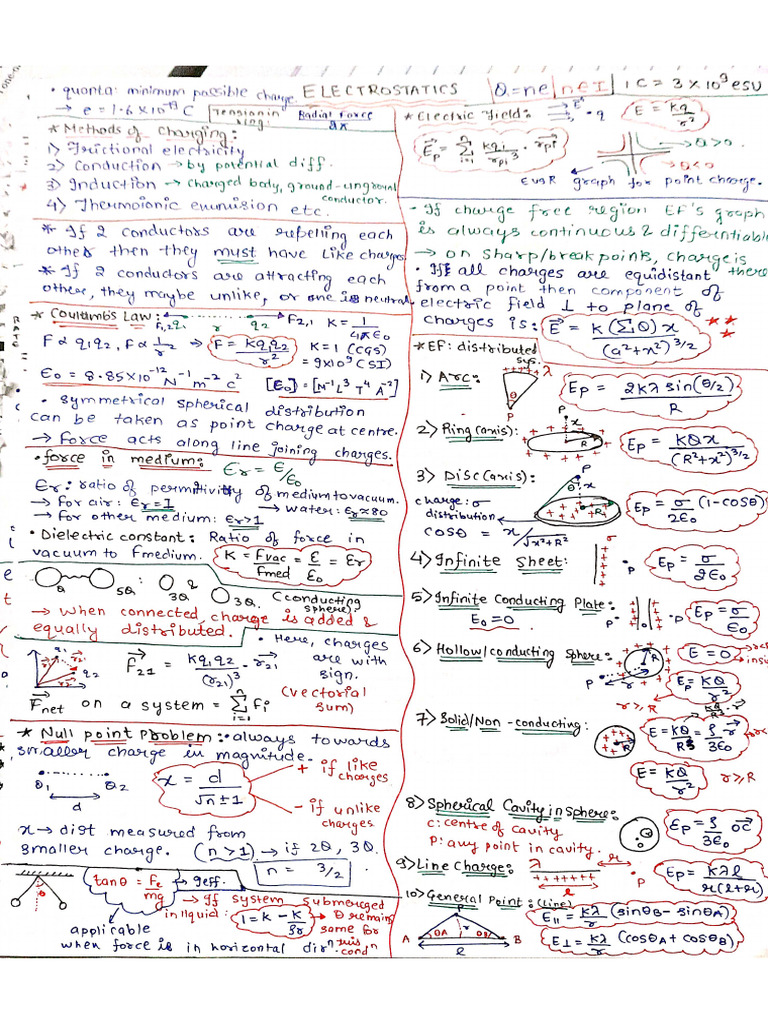 • quanta: minimum possible charge.
ELECTROSTATICS
Q=ne | neI | 1C = 3×10⁹ esu
→ e = 1.6×10⁻¹⁹ C
Tension in ring: Radial Force / 2π
* Methods of Charging:
1) Frictional electricity
2) Conduction → by potential diff.
3) Induction → charged body, ground-unground conductor.
4) Thermoionic emmision etc.
* If 2 conductors are repelling each
other then they must have like charges
* If 2 conductors are attracting each
other, they maybe unlike, or one is neutral
* Coulamb's Law:
F1,2 q1 r q2 F2,1
K = 1/4πε0
F ∝ q1q2, F ∝ 1/r² → F = Kq1q2/r²
K=1 (CGS)
= 9×10⁹ (SI)
ε0 = 8.85×10⁻¹² N⁻¹ m⁻² c²
[ε0] = [M⁻¹ L³ T⁴ A⁻²]
• symmetrical spherical distribution
can be taken as point charge at centre.
→ Force acts along line joining charges.
• force in medium: εr = ε/ε0
εr: ratio of permitivity of medium to vacuum.
→ for air: εr=1 → water: εr≈80
→ for other medium: εr>1
• Dielectric constant: Ratio of force in
vacuum to Fmedium. K = Fvac/Fmed = ε/ε0 = εr
Q 5Q : 3Q & 3Q (conducting sphere).
→ when connected, charge is added &
equally distributed.
• Here, charges
are with
sign.
F21 = Kq1q2/(r21)³ · r21
(vectorial sum)
Fnet on a system = Σ Fi i=1 n
* Null point Problem: always towards
smaller charge in magnitude.
Q1 Q2
d
x = d/√n ± 1
+ if like charges
- if unlike charges
x → dist measured from
smaller charge. (n>1) → if 2Q, 3Q.
n = 3/2
θ
tanθ = Fe/mg → geff.
→ If system submerged
in liquid: 1 = K - K/ρr → θ remains same for this condⁿ
applicable
when force is in horizontal dirⁿ
* Electric field: → E • q E = Kq/r²
Ep = Σ Kqi/rpi³ · rpi i=1 n
→ Q>0.
→ Q<0
E vs R graph for point charge.
- If charge free region EF's graph
is always continuous & differentiable
→ on sharp/break points, charge is there
• If all charges are equidistant
from a point then component of
electric field ⊥ to plane of
charges is: E = K(ΣQ)x/(a²+x²)³/²
* EF: distributed sys.
1) Arc: θ λ P Ep = 2Kλ sin(θ/2)/R
2) Ring (axis): P x R Ep = KQx/(R²+x²)³/²
3) Disc (axis): P x R
charge: σ
distribution
Ep = σ/2ε0 (1-cosθ)
cosθ = x/√x²+R²
4) Infinite Sheet: σ • P Ep = σ/2ε0
5) Infinite Conducting Plate: P • • P Ep = σ/ε0
E0 = 0.
6) Hollow/conducting sphere: R E = 0
P r r≥R Ep = KQ/r²
7) Solid/Non-conducting: R
E = KQ/R³ = ρ/3ε0 · r
E = KQ/r² r≥R
8) Spherical Cavity in Sphere:
C: centre of cavity
P: any point in cavity.
Ep = ρ/3ε0 OC
9) Line Charge: λ r • P
l
Ep = Kλl/r(l+r)
10) General Point: (Line)
P r
A θA θB B
l
E∥ = Kλ/r (sinθB - sinθA)
E⊥ = Kλ/r (cosθA + cosθB)